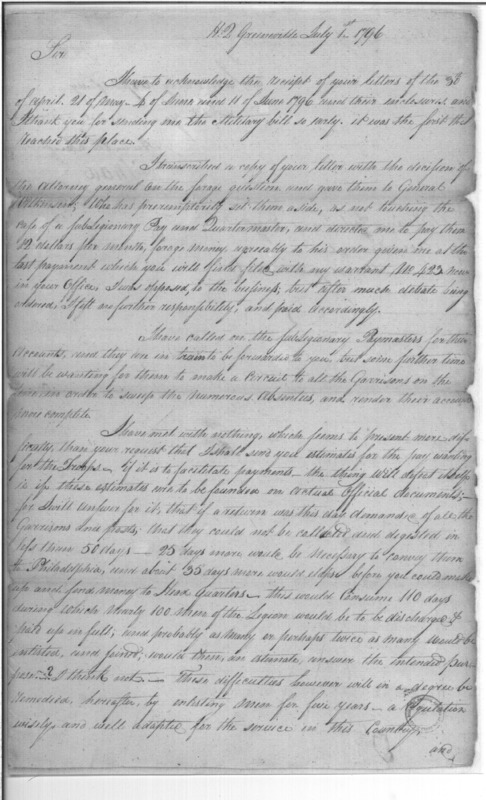 H.Q. Greenville July 1st 1796
Sir
I have to acknowledge the receipt of your letters of the 30
of April. 21 of May. 4 of June and 11 of June 1796 and their enclosures, and
I thank you for sending me the Military bill so early. it was the first that
reached this place.
I transmitted a copy of your letter with the decision of
the Attorney general on the forage question and gave them to General
Wilkinson; who has preemptorily set them aside, as not touching the
case of a sub Legionary Pay and Quartermaster, and directed me to pay them
12 dollars per month, forage money agreeably to his order given me at the
last payment which you will find filed with my warrant No. 423 now
in your Office. I was opposed to the business, but after much debate being
ordered, I felt no further responsibility, and paid accordingly.
I have called on the sub Legionary Paymasters for their
Accounts, and they are in train to be forwarded to you, but some further time
will be wanting for them to make a circuit to all the Garrisons on the
line in order to sweep the numerous Absentees, and render their accounts
more complete.
I have met with nothing, which seems to present more dif-
ficulty, than your request that I shall send you estimates for the pay wanting
for the Troops. If it is to facilitate payments the thing will defeit itself
is if these estimates are to be founded on actual Official documents;
for I will answer for it, that if a return was this day demanded of all the
Garrisons and posts; that they could not be collected and digested in
less than 50 days — 25 days more would be necessary to convey them
to Philadelphia, and about 35 days more would elapse before you could make
up and send money to Head Quarters — this would consume 110 days
during which nearly 100 Men of the Legion would be to be discharged &
paid up in full; and probably as many or perhaps twice as many would be
enlisted, and joined, would then, an estimate, answer the intended pur-
pose? I think not — these difficulties however will in a degree be
remedied, hereafter, by enlisting Men for five years — a Regulation
wisely, and well adapted for the service in this Country,
and